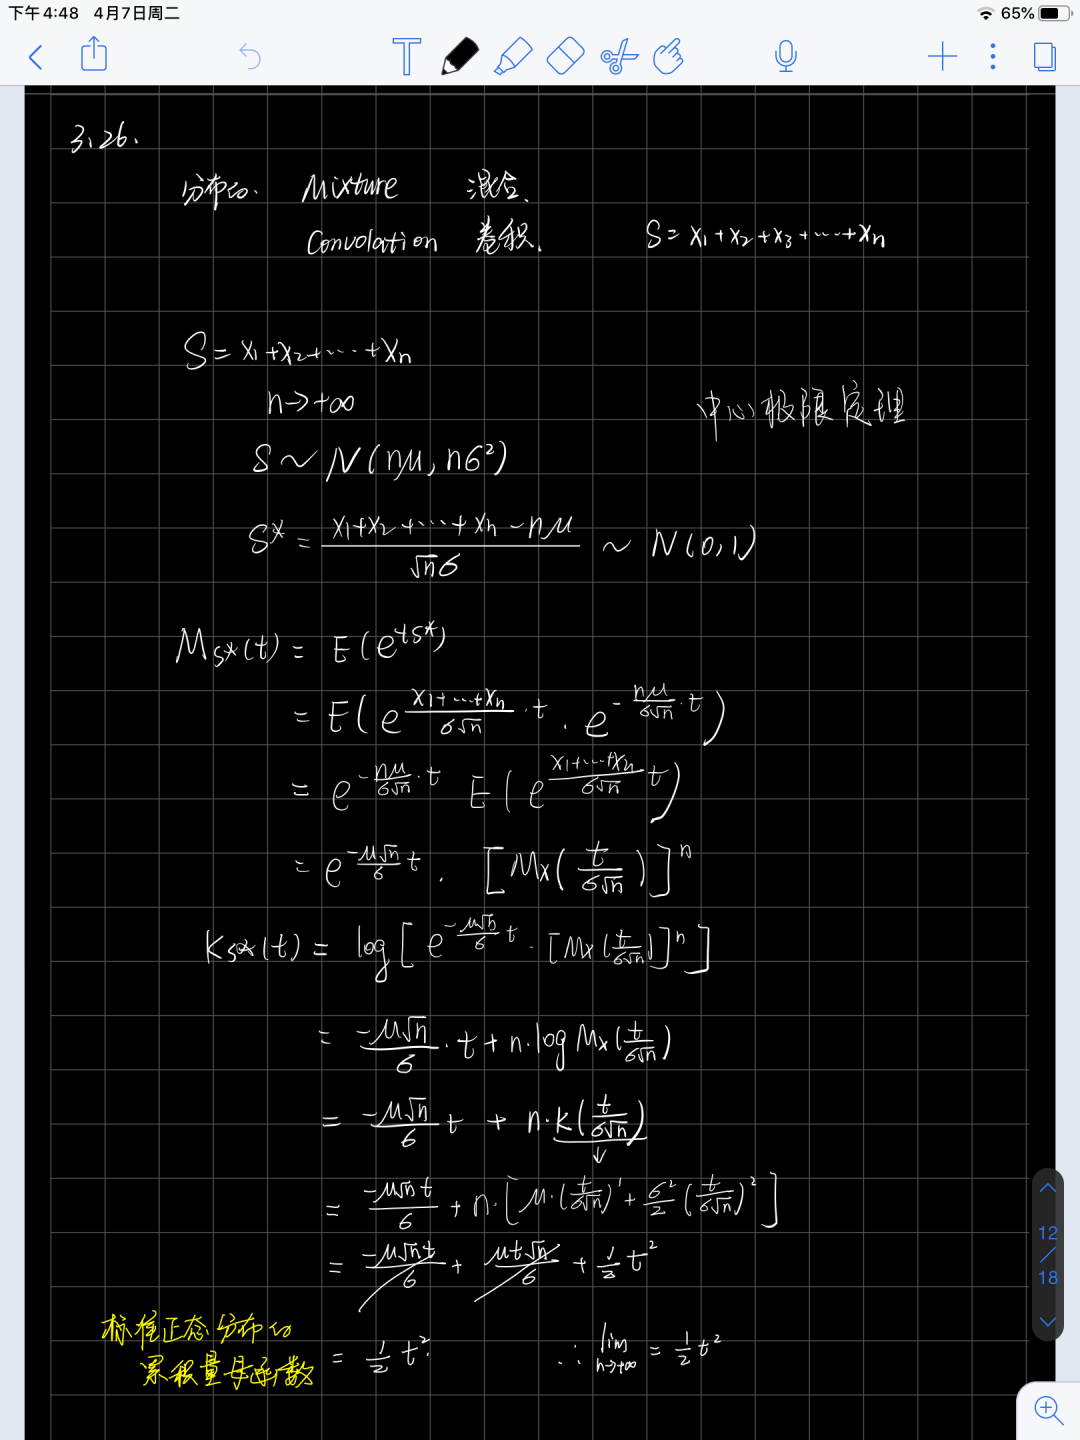 下午4:48 4月7日周二 65%
T
3.26.
分布的. Mixture 混合.
Convolation 卷积. S = x₁ + x₂ + x₃ + ⋯ + xₙ
S = x₁ + x₂ + ⋯ + xₙ
n → +∞ 中心极限定理
S ~ N(nμ, nσ²)
S* = (x₁ + x₂ + ⋯ + xₙ - nμ) / (√n σ) ~ N(0,1)
M_{S*}(t) = E(e^{tS*})
= E(e^{(x₁+⋯+xₙ)/(σ√n)·t} · e^{-nμ/(σ√n)·t})
= e^{-nμ/(σ√n)·t} E(e^{(x₁+⋯+xₙ)/(σ√n) t})
= e^{-μ√n/σ t} · [Mx(t/(σ√n))]ⁿ
K_{S*}(t) = log[e^{-μ√n/σ t} · [Mx(t/(σ√n))]ⁿ]
= -μ√n/σ · t + n·log Mx(t/(σ√n))
= -μ√n/σ t + n·K(t/(σ√n))
↓
= -μ√n t/σ + n·[μ·(t/(σ√n))' + σ²/2 (t/(σ√n))²]
= -μ√n t/σ + μt√n/σ + 1/2 t²
标准正态分布的
累积量母函数
= 1/2 t² ∴ lim_{n→+∞} = 1/2 t²
12
/
18